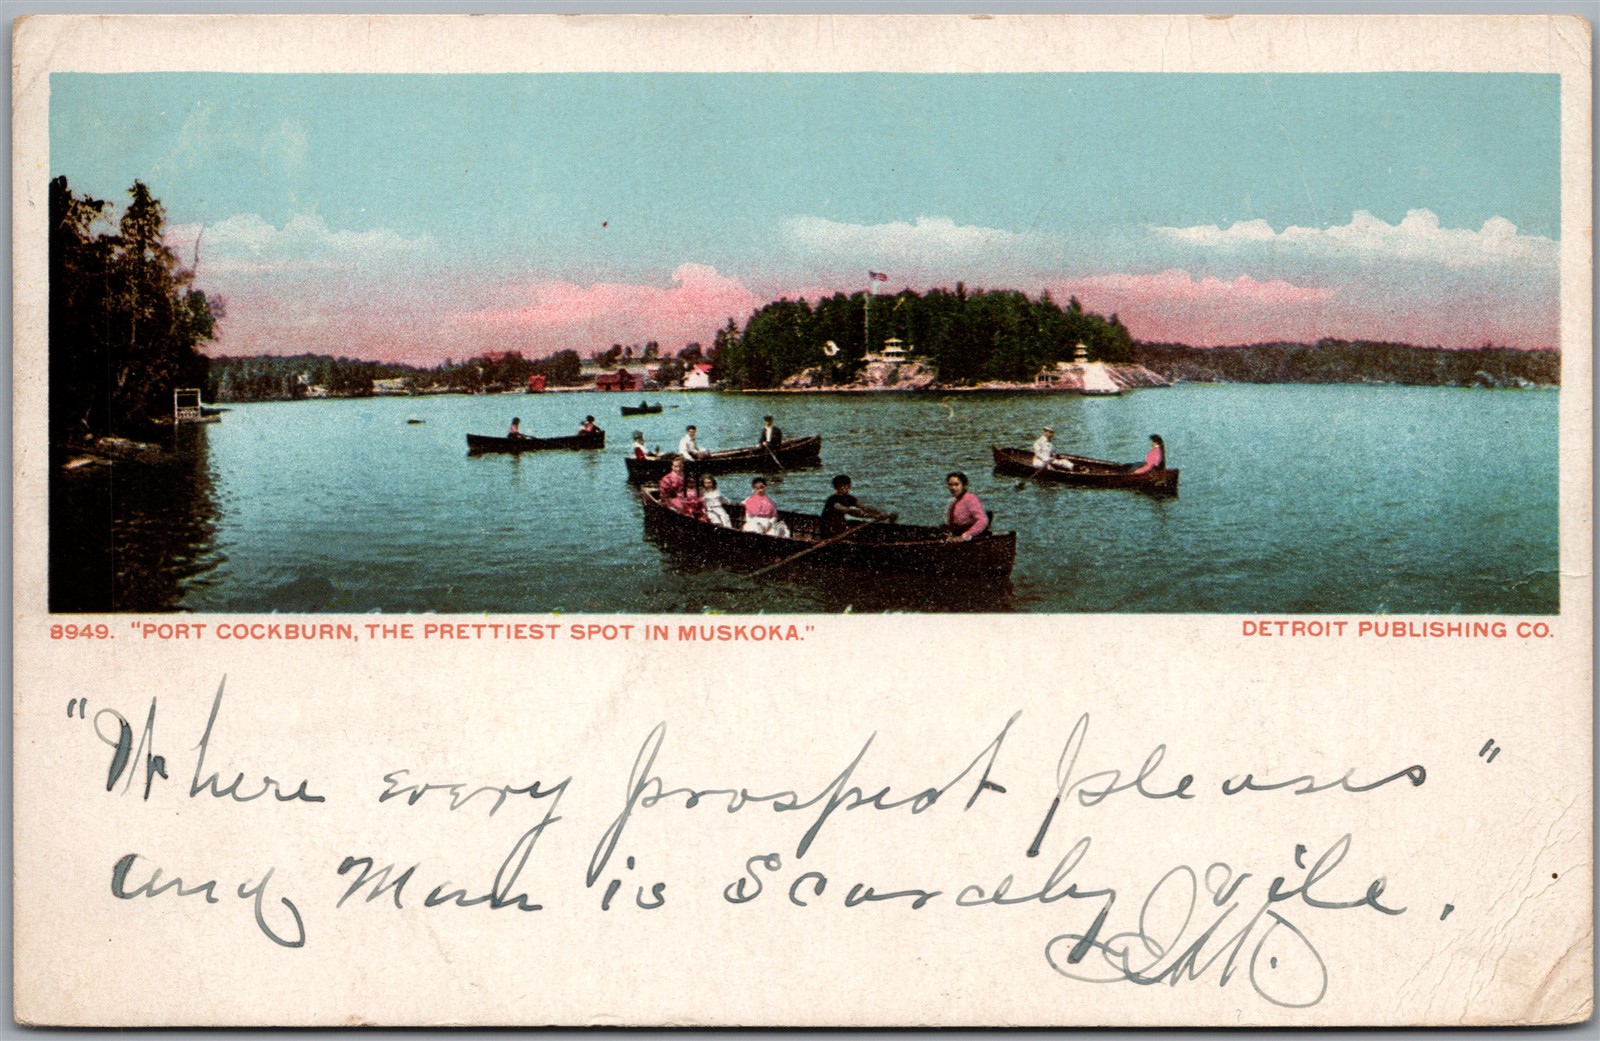 8949. "PORT COCKBURN, THE PRETTIEST SPOT IN MUSKOKA."
DETROIT PUBLISHING CO.
"Where every prospect pleases"
and Man is Scarcely Vile.